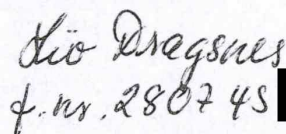 Liv Dragsnes
f.nr. 280745